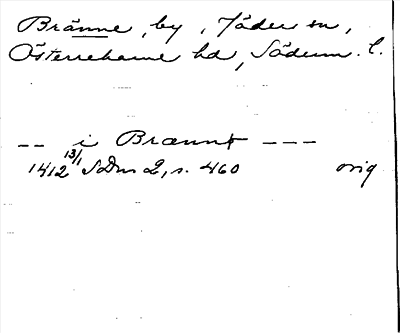 Bränne, by, Jäder sn,
Österrekarne hd, Söderm. l.
-- i Brænnæ ---
1412 13/1 SDns 2, s. 460 orig